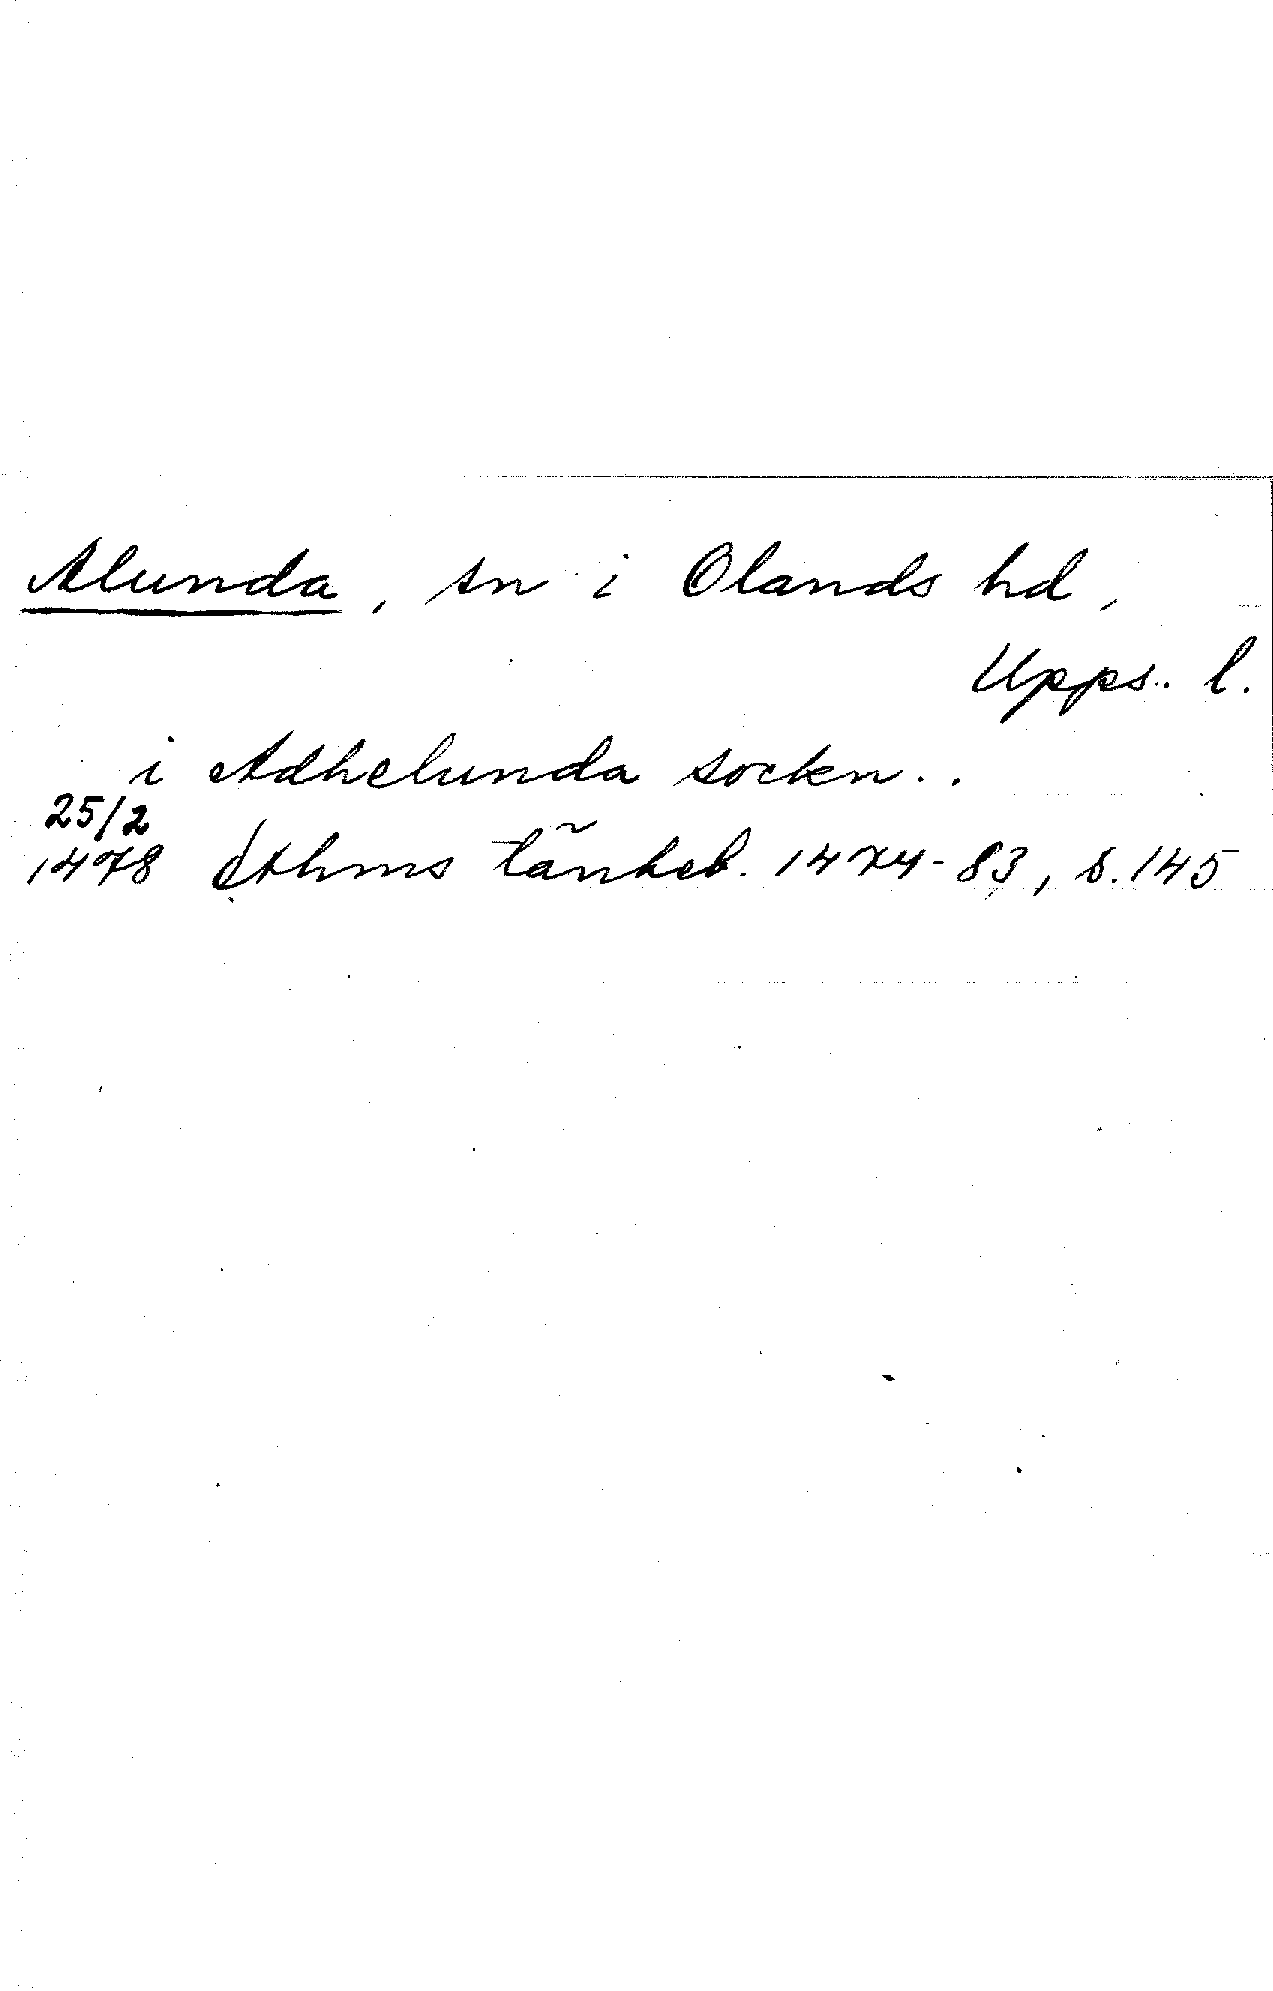 Alunda, sn i Olands hd,
Upps. l.
i Adhelunda socken..
25/2
1478 Sthms tänkeb. 1474-83, s. 145